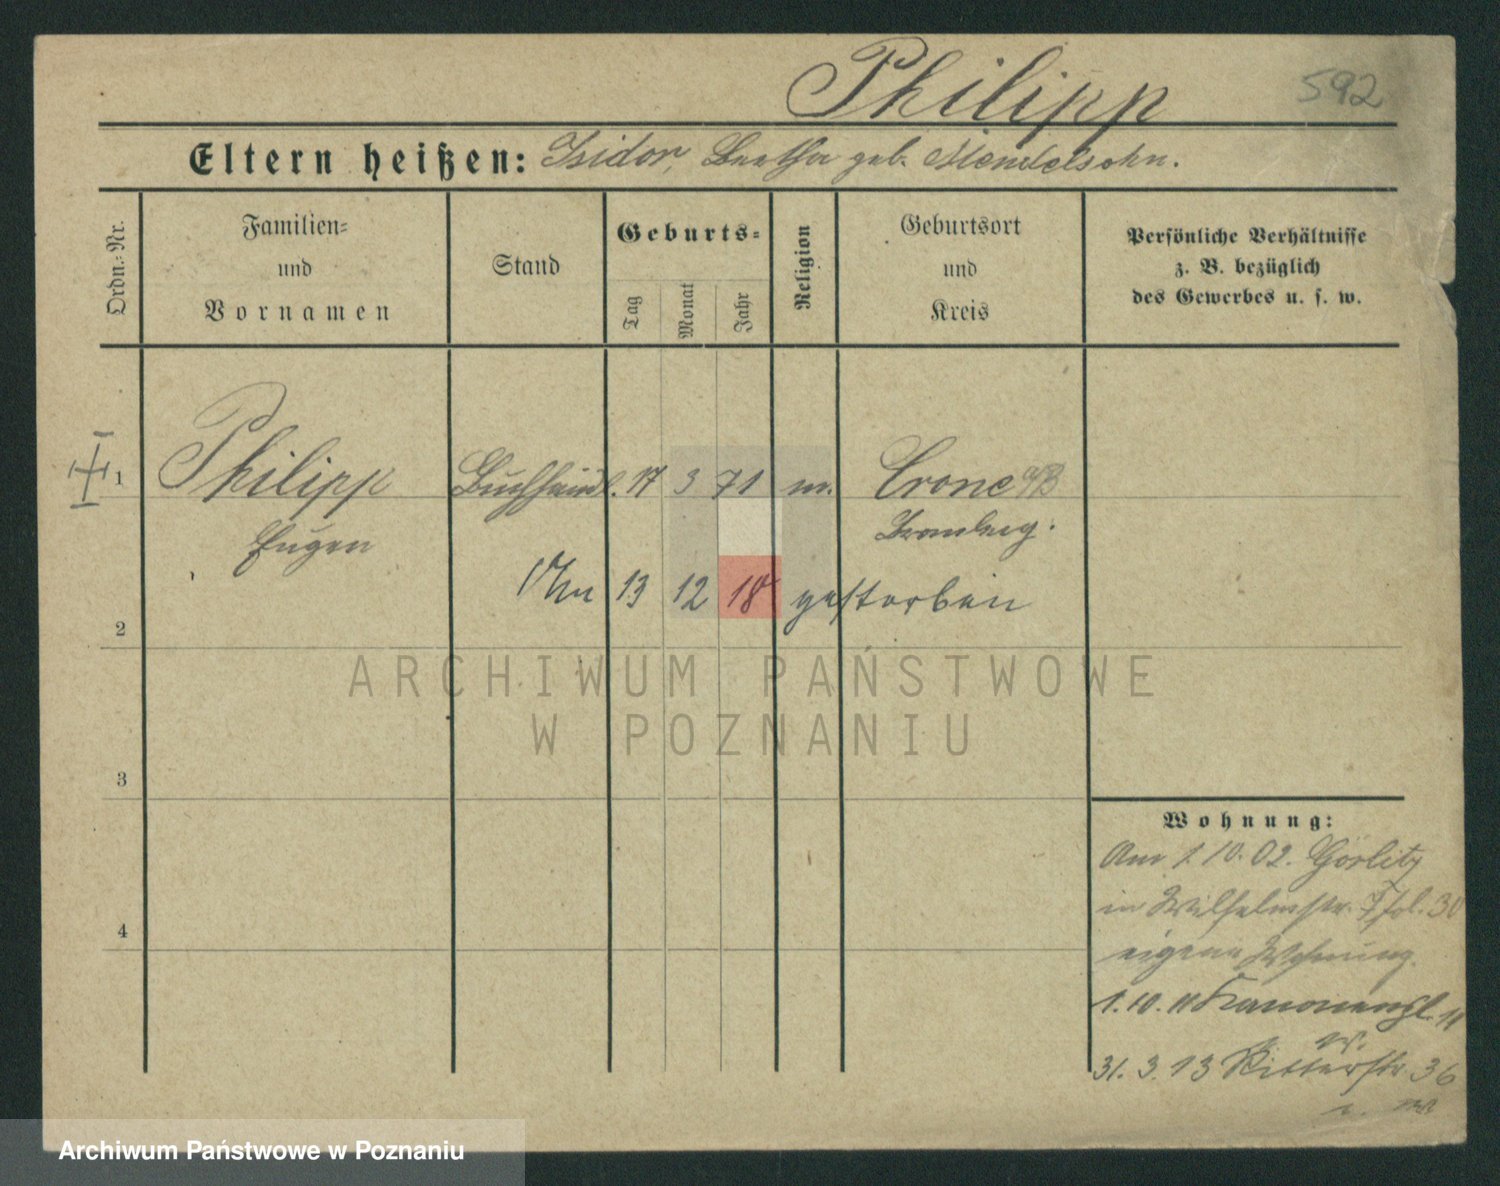 Philipp 592
Eltern heißen: Isidor, Bertha geb. Mendelsohn.
Ordn.-Nr.
Familien-
und
Vornamen
Stand
Geburts-
Tag
Monat
Jahr
Religion
Geburtsort
und
Kreis
Persönliche Verhältnisse
z. B. bezüglich
des Gewerbes u. s. w.
1 Philipp Buchhändl. 17 3 71 m. Crone a/B
Eugen Bromberg.
13 12 18 gestorben
2
ARCHIWUM PAŃSTWOWE
W POZNANIU
3
Wohnung:
Am 1.10.02. Görlitz
in Wilhelmstr. 7 fol. 30
eigene Wohnung.
4
1.10.11 Kanonenpl. 11
31.3.13 Ritterstr. 36
Archiwum Państwowe w Poznaniu